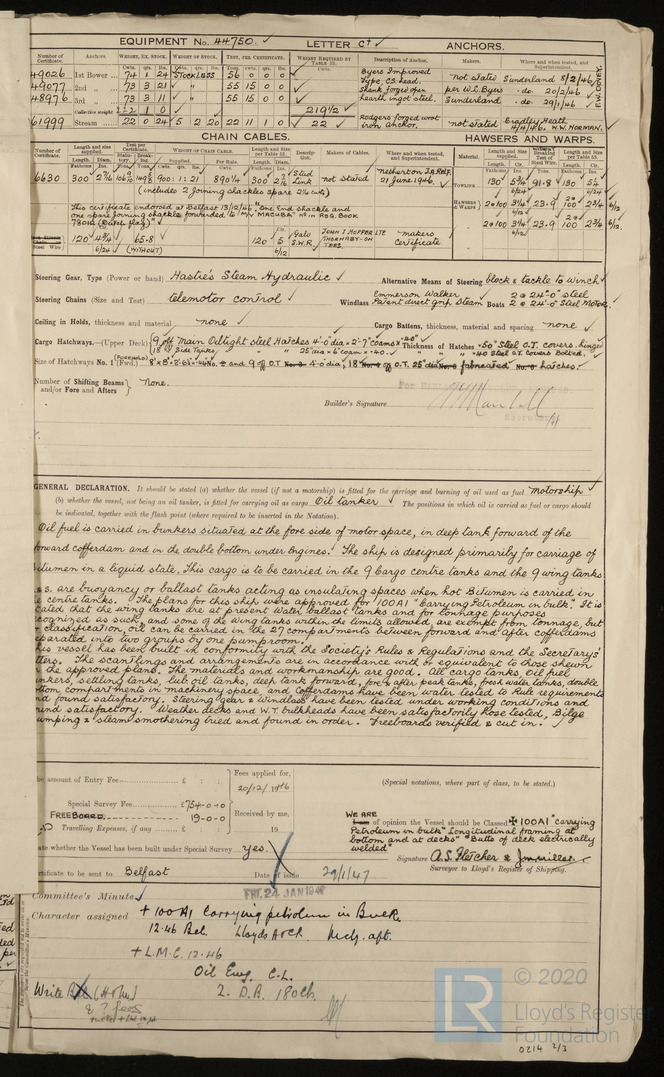 EQUIPMENT No. 44750. LETTER C† ANCHORS.
Number of Certificate. Anchors. WEIGHT, EX. STOCK. WEIGHT OF STOCK. TEST, PER CERTIFICATE. WEIGHT REQUIRED BY TABLE 53. Description of Anchor. Makers. Where and when tested, and Superintendent.
49026 1st Bower 74 1 24 STOCKLESS 56 0 0 0 Byers Improved Type, C.S. head. not stated Sunderland 8/2/46
49077 2nd 73 3 21 " 55 15 0 0 Shank forged open per W.L. Byers do 20/2/46
48976 3rd 73 3 11 " 55 15 0 0 hearth ingot steel. Sunderland do 29/1/46 F.W. DOVEY.
Collective weight 222 1 0 219 1/2
61999 Stream 22 0 24 5 2 20 22 11 1 0 22 Rodgers forged wrot iron anchor. not stated Bradley Heath W.W. NORMAN.
CHAIN CABLES. HAWSERS AND WARPS.
6630 300 2 7/16 900:1:21 890 1/4 300 2 7/16 Stud Link not stated Netherton 21 June 1946.
(includes 2 joining shackles spare
This certificate endorsed at Belfast 13/2/46 "one End shackle and
one spare joining shackle forwarded to M/V "MACUBA" No in REG. BOOK
78012 (Dutch flag)"
Steel Wire 120 4 3/4 65.8 (WITHOUT) 120 5 Galo S.W.R. JOHN T. HOPPER LTD THORNABY-ON-TEES. Makers Certificate
TOWLINE 130 5 1/4 91.8 130 5 1/4
HAWSERS & WARPS 2@100 3 1/4 23.9 2@100 2 3/4
2@100 3 1/4 23.9 2@100 2 3/4
Steering Gear, Type (Power or hand) Hastie's Steam Hydraulic Alternative Means of Steering block & tackle to winch
Steering Chains (Size and Test) telemotor control Windlass Emmerson Walker Patent direct grip Steam Boats 2 @ 24'-0" steel 2 @ 24'-0" Steel MOTOR.
Ceiling in Holds, thickness and material none Cargo Battens, thickness, material and spacing none
Cargo Hatchways.—(Upper Deck) 9 off main Oiltight steel Hatches 4'-0" dia × 2'-7" coams × .40" Thickness of Hatches .50" Steel O.T. covers. hinged
18 " Side Tanks, " " 25" dia × 6" coam × .40. " " .40 Steel O.T. Covers Bolted.
Size of Hatchways No. 1 (Fwd.)
Number of Shifting Beams and/or Fore and Afters None.
Builder's Signature
GENERAL DECLARATION. It should be stated (a) whether the vessel (if not a motorship) is fitted for the carriage and burning of oil used as fuel motorship
(b) whether the vessel, not being an oil tanker, is fitted for carrying oil as cargo Oil tanker The positions in which oil is carried as fuel or cargo should
be indicated, together with the flash point (where required to be inserted in the Notation).
Oil fuel is carried in bunkers situated at the fore side of motor space, in deep tank forward of the
forward cofferdam and in the double bottom under Engines. The ship is designed primarily for carriage of
bitumen in a liquid state. This cargo is to be carried in the 9 Cargo centre tanks and the 9 wing tanks
are buoyancy or ballast tanks acting as insulating spaces when hot Bitumen is carried in
e centre tanks. The plans for this ship were approved for "100A1 "Carrying Petroleum in bulk". It is
cated that the wing tanks are at present water ballast tanks and for tonnage purposes
cognized as such and some of the wing tanks within the limits allowed, are exempt from tonnage, but
classification, oil can be carried in the 27 compartments between forward and after cofferdams
eparated into two groups by one pumproom.
his vessel has been built in conformity with the Society's Rules & Regulations and the Secretary's
tters. The scantlings and arrangements are in accordance with or equivalent to those shewn
the approved plans. The materials and workmanship are good. All cargo tanks, Oil fuel
unkers, settling tanks, lub oil tanks, deep tank forward, fore & after peak tanks, fresh water tanks, double
ottom compartments in machinery space, and Cofferdams have been water tested to Rule requirements
nd found satisfactory. Steering gear & Windlass have been tested under working conditions and
und satisfactory. Weather decks and W.T. bulkheads have been satisfactorily hose tested, Bilge
umping & steam smothering tried and found in order. Freeboards verified & cut in.
he amount of Entry Fee £ : : Fees applied for,
20/12/1946
Special Survey Fee £754-0-0 Received by me,
FREEBOARD 19-0-0
Travelling Expenses, if any £ : : 19
ate whether the Vessel has been built under Special Survey yes.
ertificate to be sent to Belfast Date of issue 29/1/47
(Special notations, where part of class, to be stated.)
WE ARE
of opinion the Vessel should be Classed ✠ 100A1 "carrying
Petroleum in bulk" "Longitudinal framing at
bottom and at decks" "Butts of deck electrically
welded"
Signature A.S. Fletcher & J. Miller
Surveyor to Lloyd's Register of Shipping.
FRI. 24 JAN 1947
Committee's Minute
Character assigned + 100A1 Carrying petroleum in Bulk
12.46 Bel Lloyds A & C P. Mchy. aft.
+ L.M.C. 12.46
Oil Eng. C.L.
2. D.B. 180lb.
© 2020
LR
Lloyd's Register
Foundation
0214 2/3